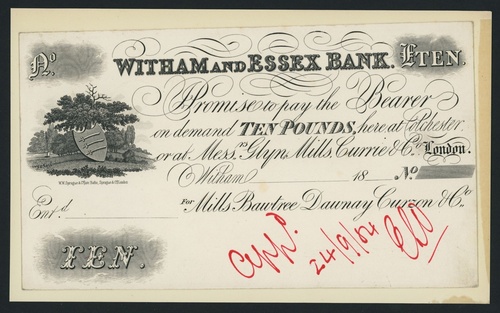 No.
WITHAM AND ESSEX BANK.
£TEN.
Promise to pay the Bearer
on demand TEN POUNDS, here at Colchester
or at Mess.rs Glyn, Mills, Currie & Co. London.
Witham 18 No
Ent.d
For Mills, Bawtree Dawnay Curzon & Co.
TEN.
App.d
24/9/84